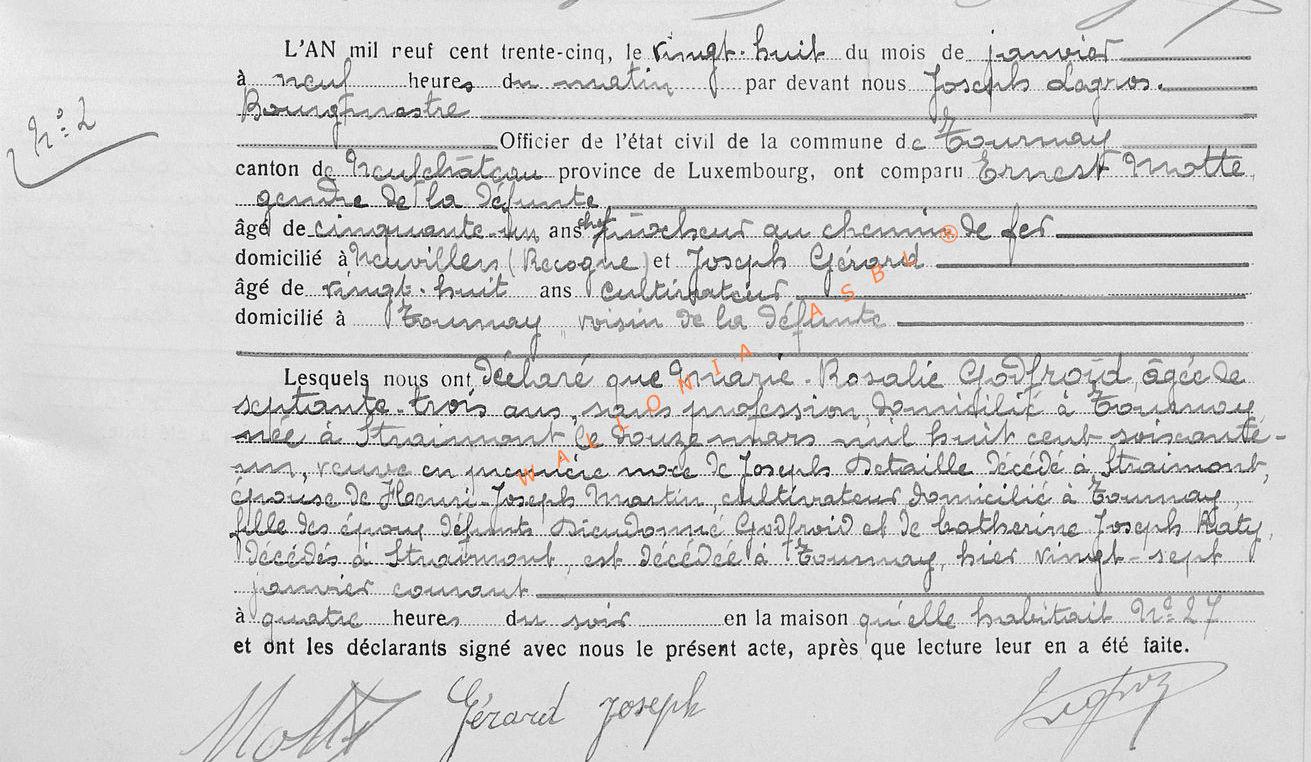 L'AN mil neuf cent trente-cinq, le vingt-huit du mois de janvier
à neuf heures du matin par devant nous Joseph Lagros.
Bourgmestre
Nº 2
Officier de l'état civil de la commune de Tournay
canton de Neufchâteau province de Luxembourg, ont comparu Ernest Motte
gendre de la défunte
âgé de cinquante-un ans chef piocheur au chemin de fer
domicilié à Neuvillers (Recogne) et Joseph Gérard
âgé de vingt-huit ans cultivateur
domicilié à Tournay voisin de la défunte
Lesquels nous ont déclaré que Marie-Rosalie Godfroid, âgée de
septante-trois ans, sans profession domicilié à Tournay
née à Straimont le douze mars mil huit cent soixante-
un, veuve en première noce de Joseph Detaille décédé à Straimont,
épouse de Henri-Joseph Martin, cultivateur domicilié à Tournay,
fille des époux défunts Dieudonné Godfroid et de Catherine Joseph Raty,
décédés à Straimont, est décédée à Tournay, hier vingt-sept
janvier courant
à quatre heures du soir en la maison qu'elle habitait Nº 27
et ont les déclarants signé avec nous le présent acte, après que lecture leur en a été faite.
Motte Gérard Joseph
WALLONIA ASBL ®